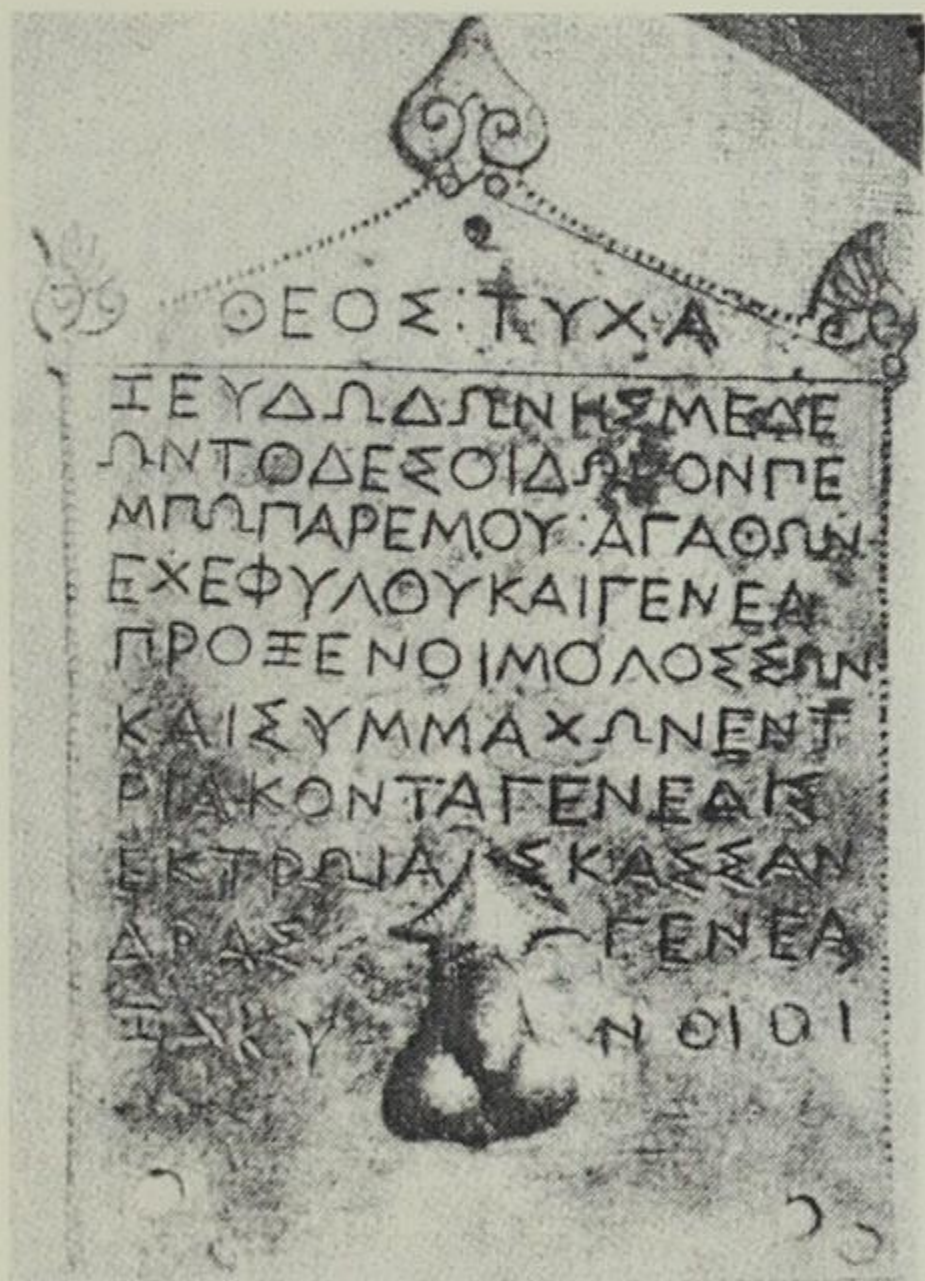 ΘΕΟΣ:ΤΥΧΑ
ΖΕΥΔΩΔΩΝΗΣΜΕΔΕ
ΩΝΤΟΔΕΣΟΙΔΩΡΟΝΠΕ
ΜΠΩΠΑΡΕΜΟΥ:ΑΓΑΘΩΝ
ΕΧΕΦΥΛΟΥΚΑΙΓΕΝΕΑ
ΠΡΟΞΕΝΟΙΜΟΛΟΣΣΩΝ
ΚΑΙΣΥΜΜΑΧΩΝΕΝΤ
ΡΙΑΚΟΝΤΑΓΕΝΕΑΙΣ
ΕΚΤΡΩΙΑΣΚΑΣΣΑΝ
ΔΡΑΣ ΓΕΝΕΑ
ΖΑΚΥΝ ΟΙΟΙ